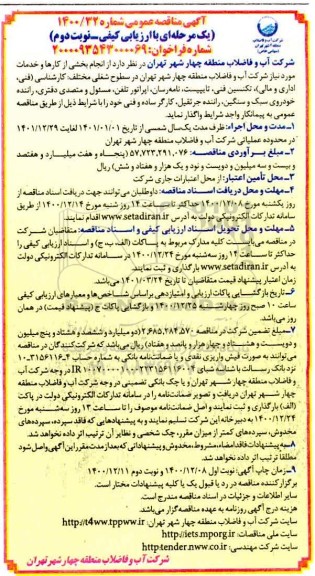 آگهی مناقصه عمومی شماره ۱۴۰۰/۳۲
(یک مرحله‌ای با ارزیابی کیفی-نوبت دوم)
شماره فراخوان: ۲۰۰۰۰۹۳۵۴۳۰۰۰۰۶۹
شرکت آب و فاضلاب منطقه چهار شهر تهران در نظر دارد از انجام بخشی از کارها و خدمات
مورد نیاز شرکت آب و فاضلاب منطقه چهار شهر تهران در سطوح شغلی مختلف: کارشناسی (فنی،
اداری و مالی)، تکنسین فنی، تایپیست، نامه‌رسان، اپراتور تلفن، مسئول و متصدی دفتری، راننده
خودروی سبک و سنگین، راننده جرثقیل، کارگر ساده و فنی خود را با شرایط ذیل از طریق مناقصه
عمومی به پیمانکار واجد شرایط واگذار نماید.
۱-مدت و محل اجراء: ظرف مدت یک‌سال شمسی از تاریخ ۱۴۰۱/۰۱/۰۱ لغایت ۱۴۰۱/۱۲/۲۹
در محدوده عملیاتی شرکت آب و فاضلاب منطقه چهار شهر تهران
۲-مبلغ برآوردی مناقصه: ۵۷,۷۲۳,۲۹۱,۰۷۶ (پنجاه و هفت میلیارد و هفتصد
و بیست و سه میلیون و دویست و نود و یک هزار و هفتاد و شش) ریال
۳-محل تأمین اعتبار: از محل اعتبارات جاری شرکت
۴-مهلت و محل دریافت اسناد مناقصه: داوطلبان می‌توانند جهت دریافت اسناد مناقصه از
روز یکشنبه مورخ ۱۴۰۰/۱۲/۰۸ حداکثر تا ساعت ۱۴ روز شنبه مورخ ۱۴۰۰/۱۲/۱۴ از طریق
سامانه تدارکات الکترونیکی دولت به آدرس www.setadiran.ir اقدام نمایند.
۵-مهلت و محل تحویل اسناد ارزیابی کیفی و اسناد مناقصه: متقاضیان شرکت
در مناقصه می‌بایست کلیه مدارک مربوط به پاکات (الف، ب، ج) و اسناد ارزیابی کیفی را
حداکثر تا ساعت ۱۴ روز سه‌شنبه مورخ ۱۴۰۰/۱۲/۲۴ در سامانه تدارکات الکترونیکی دولت
به آدرس www.setadiran.ir بارگذاری و ثبت نمایند.
زمان اعتبار پیشنهاد قیمت متقاضیان تا تاریخ ۱۴۰۱/۰۳/۲۴ می‌باشد.
۶-تاریخ بازگشایی پاکات ارزیابی و امتیازدهی براساس شاخص‌ها و معیارهای ارزیابی کیفی
ساعت ۱۰ صبح روز چهارشنبه ۱۴۰۰/۱۲/۲۵ و بازگشایی پاکات ج (پیشنهاد قیمت) در همان
روز می‌باشد.
۷-مبلغ تضمین شرکت در مناقصه ۲,۶۸۵,۲۸۴,۵۷۰ (دو میلیارد و ششصد و هشتاد و پنج میلیون
و دویست و هشتاد و چهار هزار و پانصد و هفتاد) ریال می‌باشد که شرکت‌کنندگان در مناقصه
می‌توانند به صورت فیش واریزی نقدی و یا ضمانت‌نامه بانکی به شماره حساب
نزد بانک رسالت با شناسه شبای IR در وجه شرکت آب
و فاضلاب منطقه چهار شهر تهران و یا چک بانکی تضمینی در وجه شرکت آب و فاضلاب منطقه
چهار شهر تهران دریافت و تصویر ضمانت‌نامه را در سامانه تدارکات الکترونیکی دولت در پاکت
(الف) بارگذاری و ثبت نمایند و اصل ضمانت‌نامه موصوف را تا ساعت ۱۳ روز سه‌شنبه مورخ
۱۴۰۰/۱۲/۲۴ به دبیرخانه این شرکت تسلیم نمایند و به پیشنهادهایی که فاقد سپرده، سپرده‌های
مخدوش، سپرده‌های کمتر از میزان مقرر، چک شخصی و نظایر آن ترتیب اثر داده نخواهد شد.
۸-به پیشنهادات فاقد امضاء، مشروط، مخدوش و پیشنهاداتی که بعد از مدت مقرر این آگهی واصل شود
مطلقاً ترتیب اثر داده نخواهد شد.
۹-زمان چاپ آگهی: نوبت اول ۱۴۰۰/۱۲/۰۸ و نوبت دوم ۱۴۰۰/۱۲/۱۱
برگزارکننده مناقصه در رد یا قبول یک یا کلیه پیشنهادات مختار است.
سایر اطلاعات و جزئیات در اسناد مناقصه مندرج است.
هزینه درج آگهی روزنامه به عهده مناقصه‌گزار می‌باشد.
سایت شرکت آب و فاضلاب منطقه چهار شهر تهران: http://t4ww.tppww.ir
سایت ملی مناقصات: http://iets.mporg.ir
سایت شرکت مهندسی: http:tender.nww.co.ir
شرکت آب و فاضلاب منطقه چهار شهر تهران